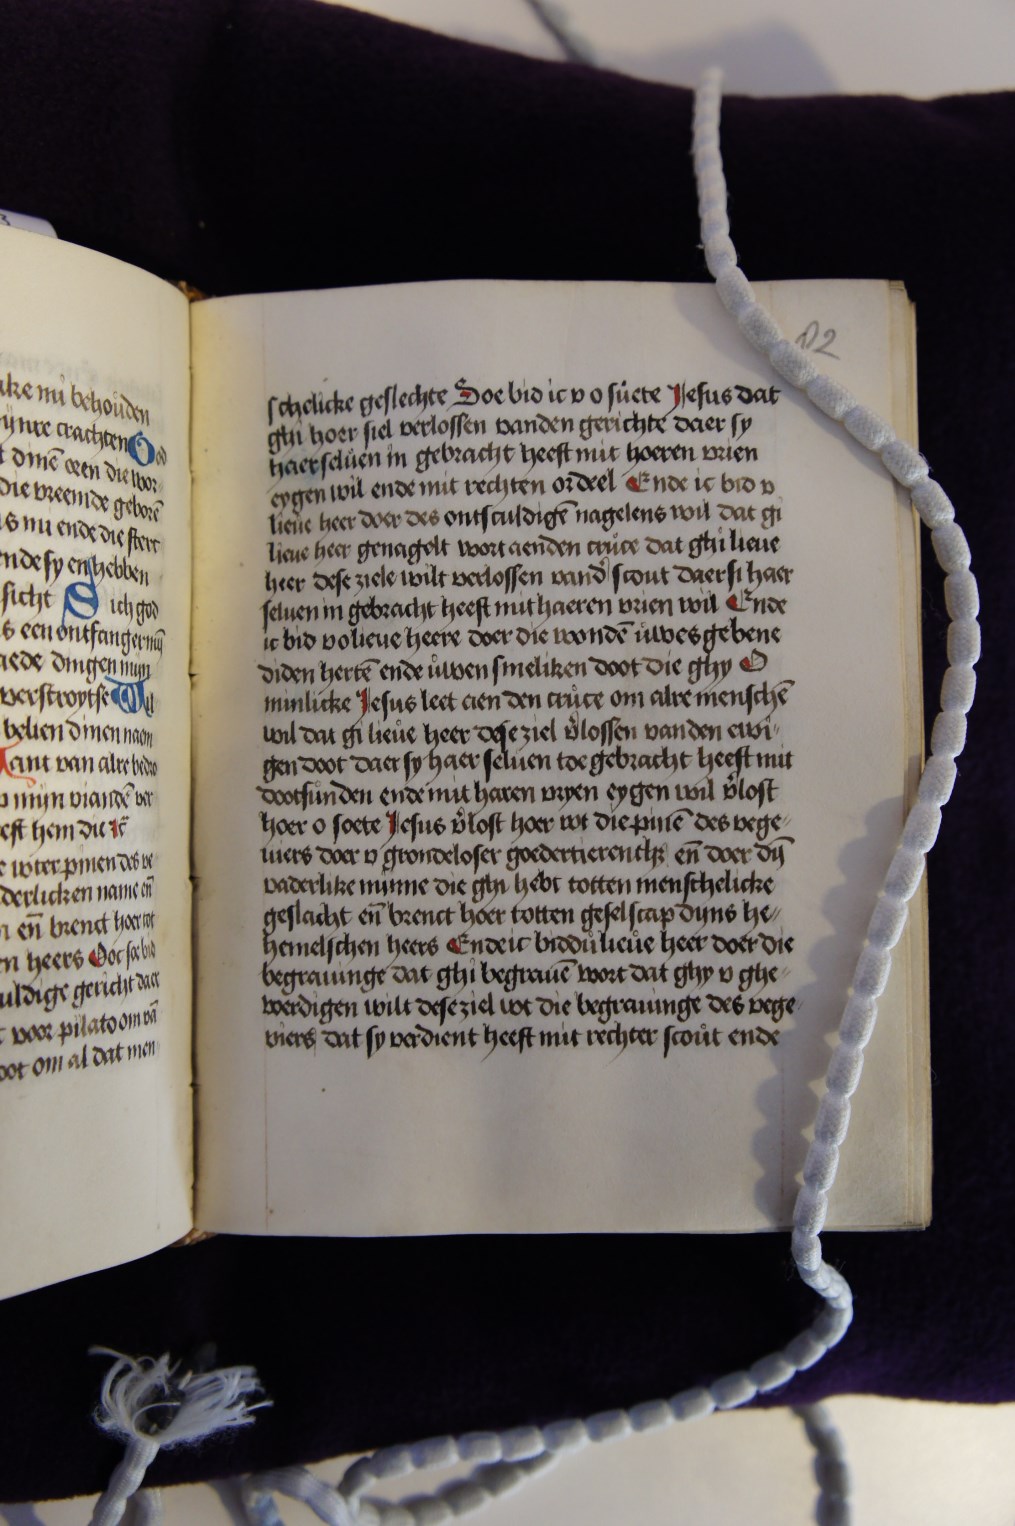 3
ake mi behouden
ynre crachten God
t dinē oren die wor-
die vreemde geborē
s nu ende die sterc
nde sy en hebben
sicht Sich god
s een ontfanger mij
aede dingen mijn
verstroytse Wil
belien dinen naem
Want van alre bedro
mijn viandē ver
eft hem die
wter pinen des ve
derlicken name en̄
en̄ brenct hoer tot
n heers Ooc soe bid
uldige gericht daer
voor pilato om vā
oot om al dat men
92
schelicke geslechte Soe bid ic v o suete Jesus dat
ghi hoer siel verlossen vanden gerichte daer sy
haer seluen in gebracht heeft mit hoeren vrien
eygen wil ende mit rechten ordeel Ende ic bid v
lieue heer doer des ontsculdigē nagelens wil dat gi
lieue heer genagelt wort aenden cruce dat ghi lieue
heer dese ziele wilt verlossen vand' scout daer si haer
seluen in gebracht heeft mit haeren vrien wil Ende
ic bid v o lieue heere doer die wondē uwes gebene
diden hertē ende uwen smeliken doot die ghy O
minlicke Jesus leet aen den cruce om alre menschē
wil dat gi lieue heer dese ziel v'lossen vanden ewi-
gen doot daer sy haer seluen toe gebracht heeft mit
dootsunden ende mit haren vryen eygen wil v'lost
hoer o soete Jesus v'lost hoer wt die pinē des vege-
uiers doer v grondeloser goedertierenth' en̄ doer dijn
vaderlike minne die ghi hebt totten menschelicke
geslacht en̄ brenct hoer totten geselscap dyns he-
hemelschen heers Ende ic bidd u lieue heer doer die
begrauinge dat ghi begrauē wort dat ghy v ghe-
werdigen wilt dese ziel wt die begrauinge des vege-
viers dat sy verdient heeft mit rechter scout ende